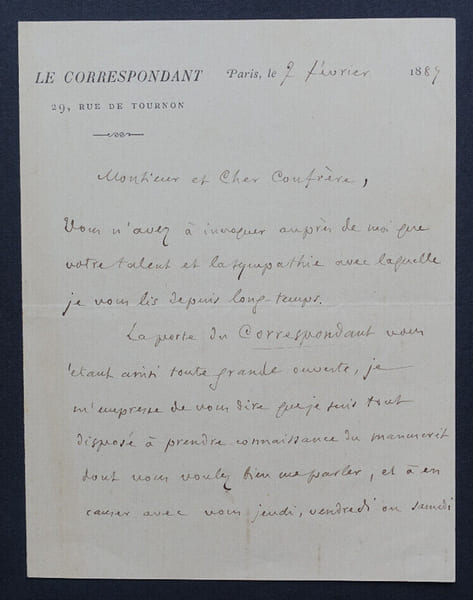 LE CORRESPONDANT Paris, le 7 février 1889
29, RUE DE TOURNON
Monsieur et Cher Confrère,
Vous n'avez à invoquer auprès de moi que
votre talent et la sympathie avec laquelle
je vous lis depuis long-temps.
La porte du Correspondant vous
étant ainsi toute grande ouverte, je
m'empresse de vous dire que je suis tout
disposé à prendre connaissance du manuscrit
dont vous voulez bien me parler, et à en
causer avec vous jeudi, vendredi ou samedi